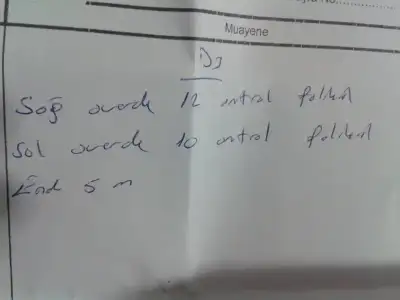 Muayene
D3
Sağ overde 12 antral folikül
Sol overde 10 antral folikül
End 5 m